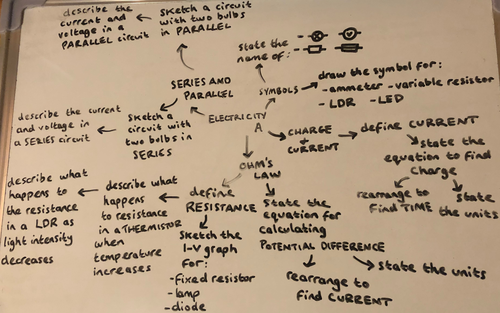 describe the
current and
voltage in a
PARALLEL circuit
sketch a circuit
with two bulbs
in PARALLEL
state the
name of:
SERIES AND
PARALLEL
SYMBOLS
draw the symbol for:
- ammeter - variable resistor
- LDR - LED
describe the current
and voltage in
a SERIES circuit
sketch a
circuit with
two bulbs in
SERIES
ELECTRICITY
A
CHARGE
+
CURRENT
define CURRENT
state the
equation to find
charge
rearrange to
find TIME
state
the units
OHM'S
LAW
define
RESISTANCE
describe what
happens
to resistance
in a THERMISTOR
when
temperature
increases
describe what
happens to
the resistance
in a LDR as
light intensity
decreases
sketch the
I-V graph
for:
- fixed resistor
- lamp
- diode
state the
equation for
calculating
POTENTIAL DIFFERENCE
state the units
rearrange to
find CURRENT